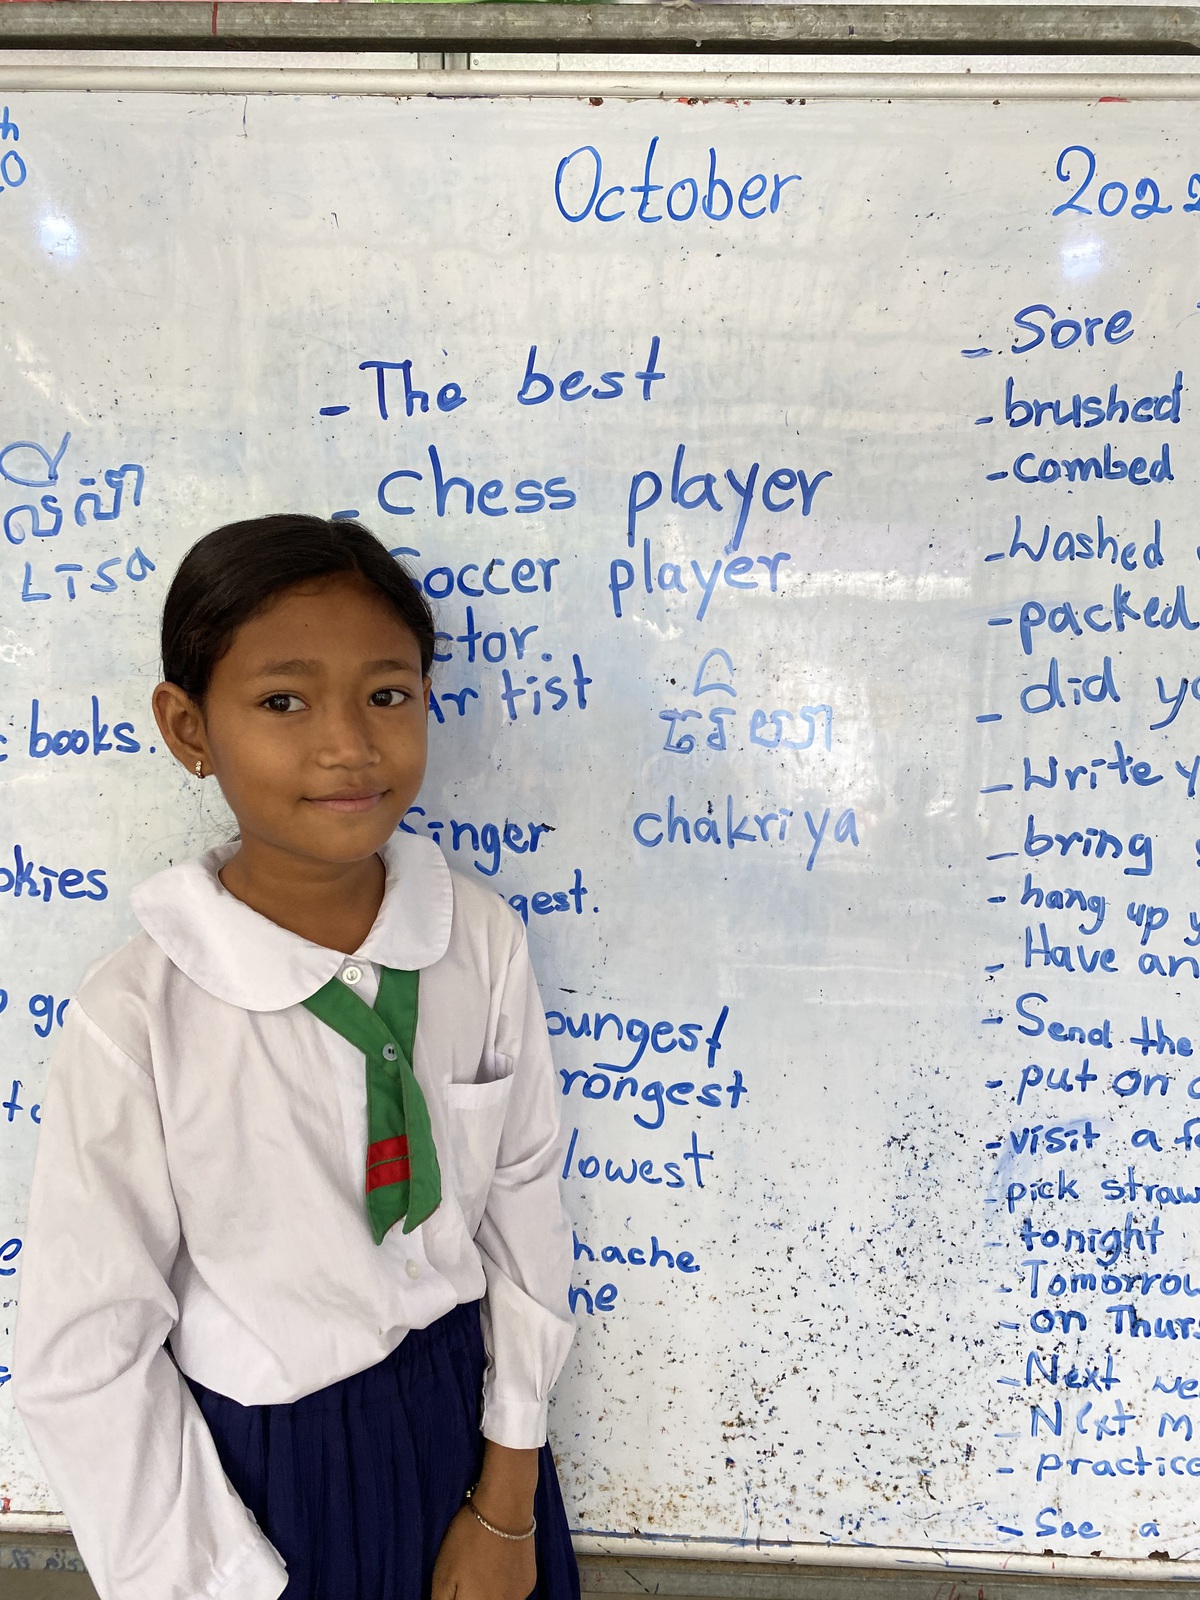 October 2022
- The best
- chess player
Soccer player
ctor.
Artist
Singer
chakriya
gest.
oungest
rongest
lowest
hache
ne
Lisa
books.
okies
- Sore
- brushed
- combed
- Washed
- packed
- did yo
- Write y
- bring
- hang up y
- Have an
- Send the
- put on
- visit a
- pick straw
- tonight
- Tomorrow
- on Thurs
- Next we
- Next m
- practice
- See a